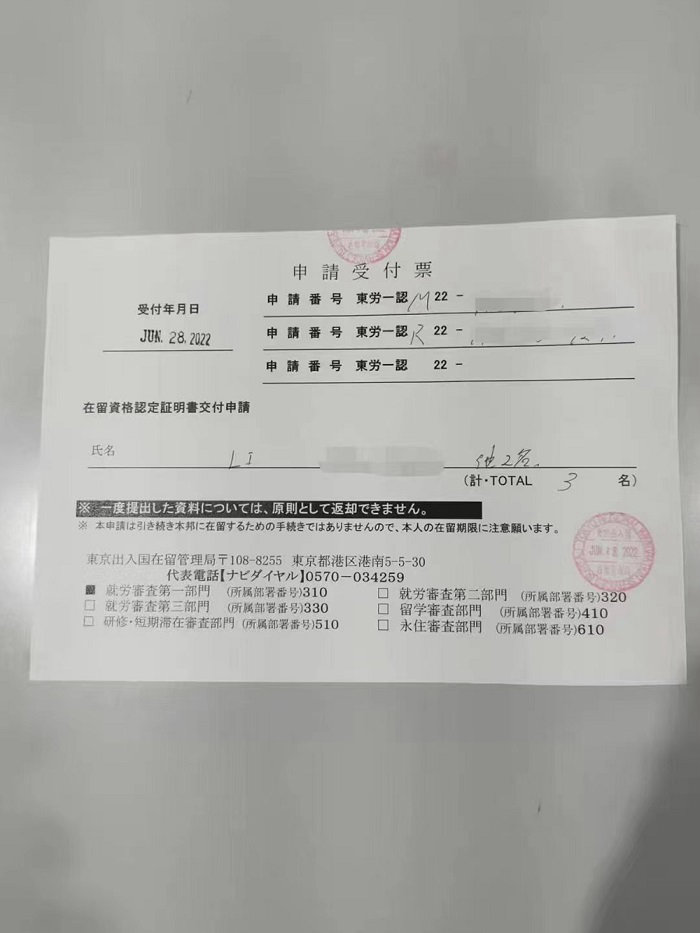 申請受付票
受付年月日
JUN. 28. 2022
申請番号 東労一認 M 22 -
申請番号 東労一認 R 22 -
申請番号 東労一認 22 -
在留資格認定証明書交付申請
氏名 LI 他2名.
(計・TOTAL 3 名)
※ 一度提出した資料については、原則として返却できません。
※ 本申請は引き続き本邦に在留するための手続きではありませんので、本人の在留期限に注意願います。
東京出入国在留管理局〒108-8255 東京都港区港南5-5-30
代表電話【ナビダイヤル】0570-034259
■ 就労審査第一部門 (所属部署番号)310 □ 就労審査第二部門 (所属部署番号)320
□ 就労審査第三部門 (所属部署番号)330 □ 留学審査部門 (所属部署番号)410
□ 研修・短期滞在審査部門 (所属部署番号)510 □ 永住審査部門 (所属部署番号)610